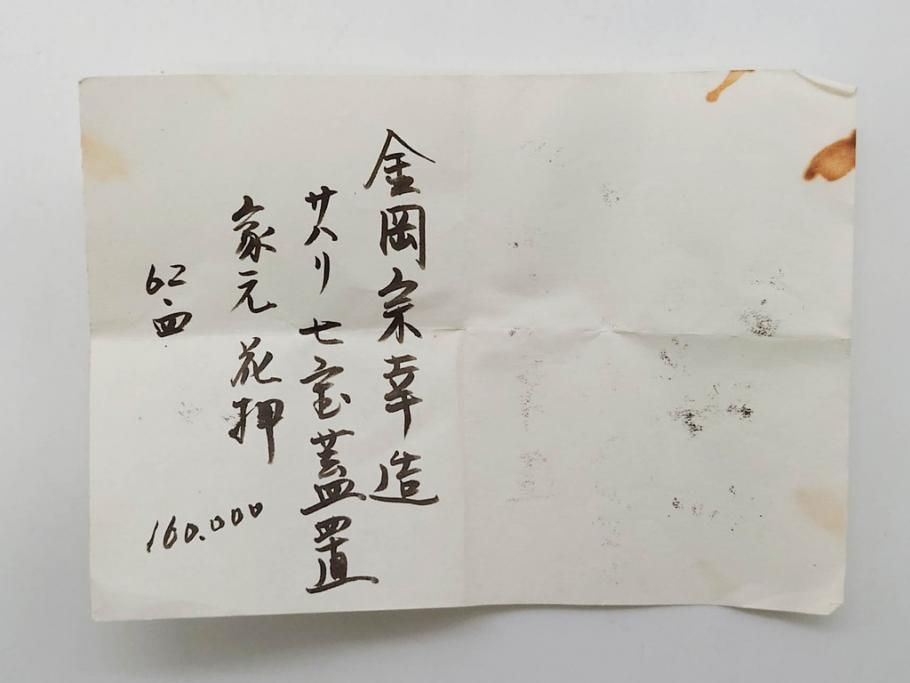 金岡宗幸造
サハリ七宝蓋置
家元花押
62.四
160.000